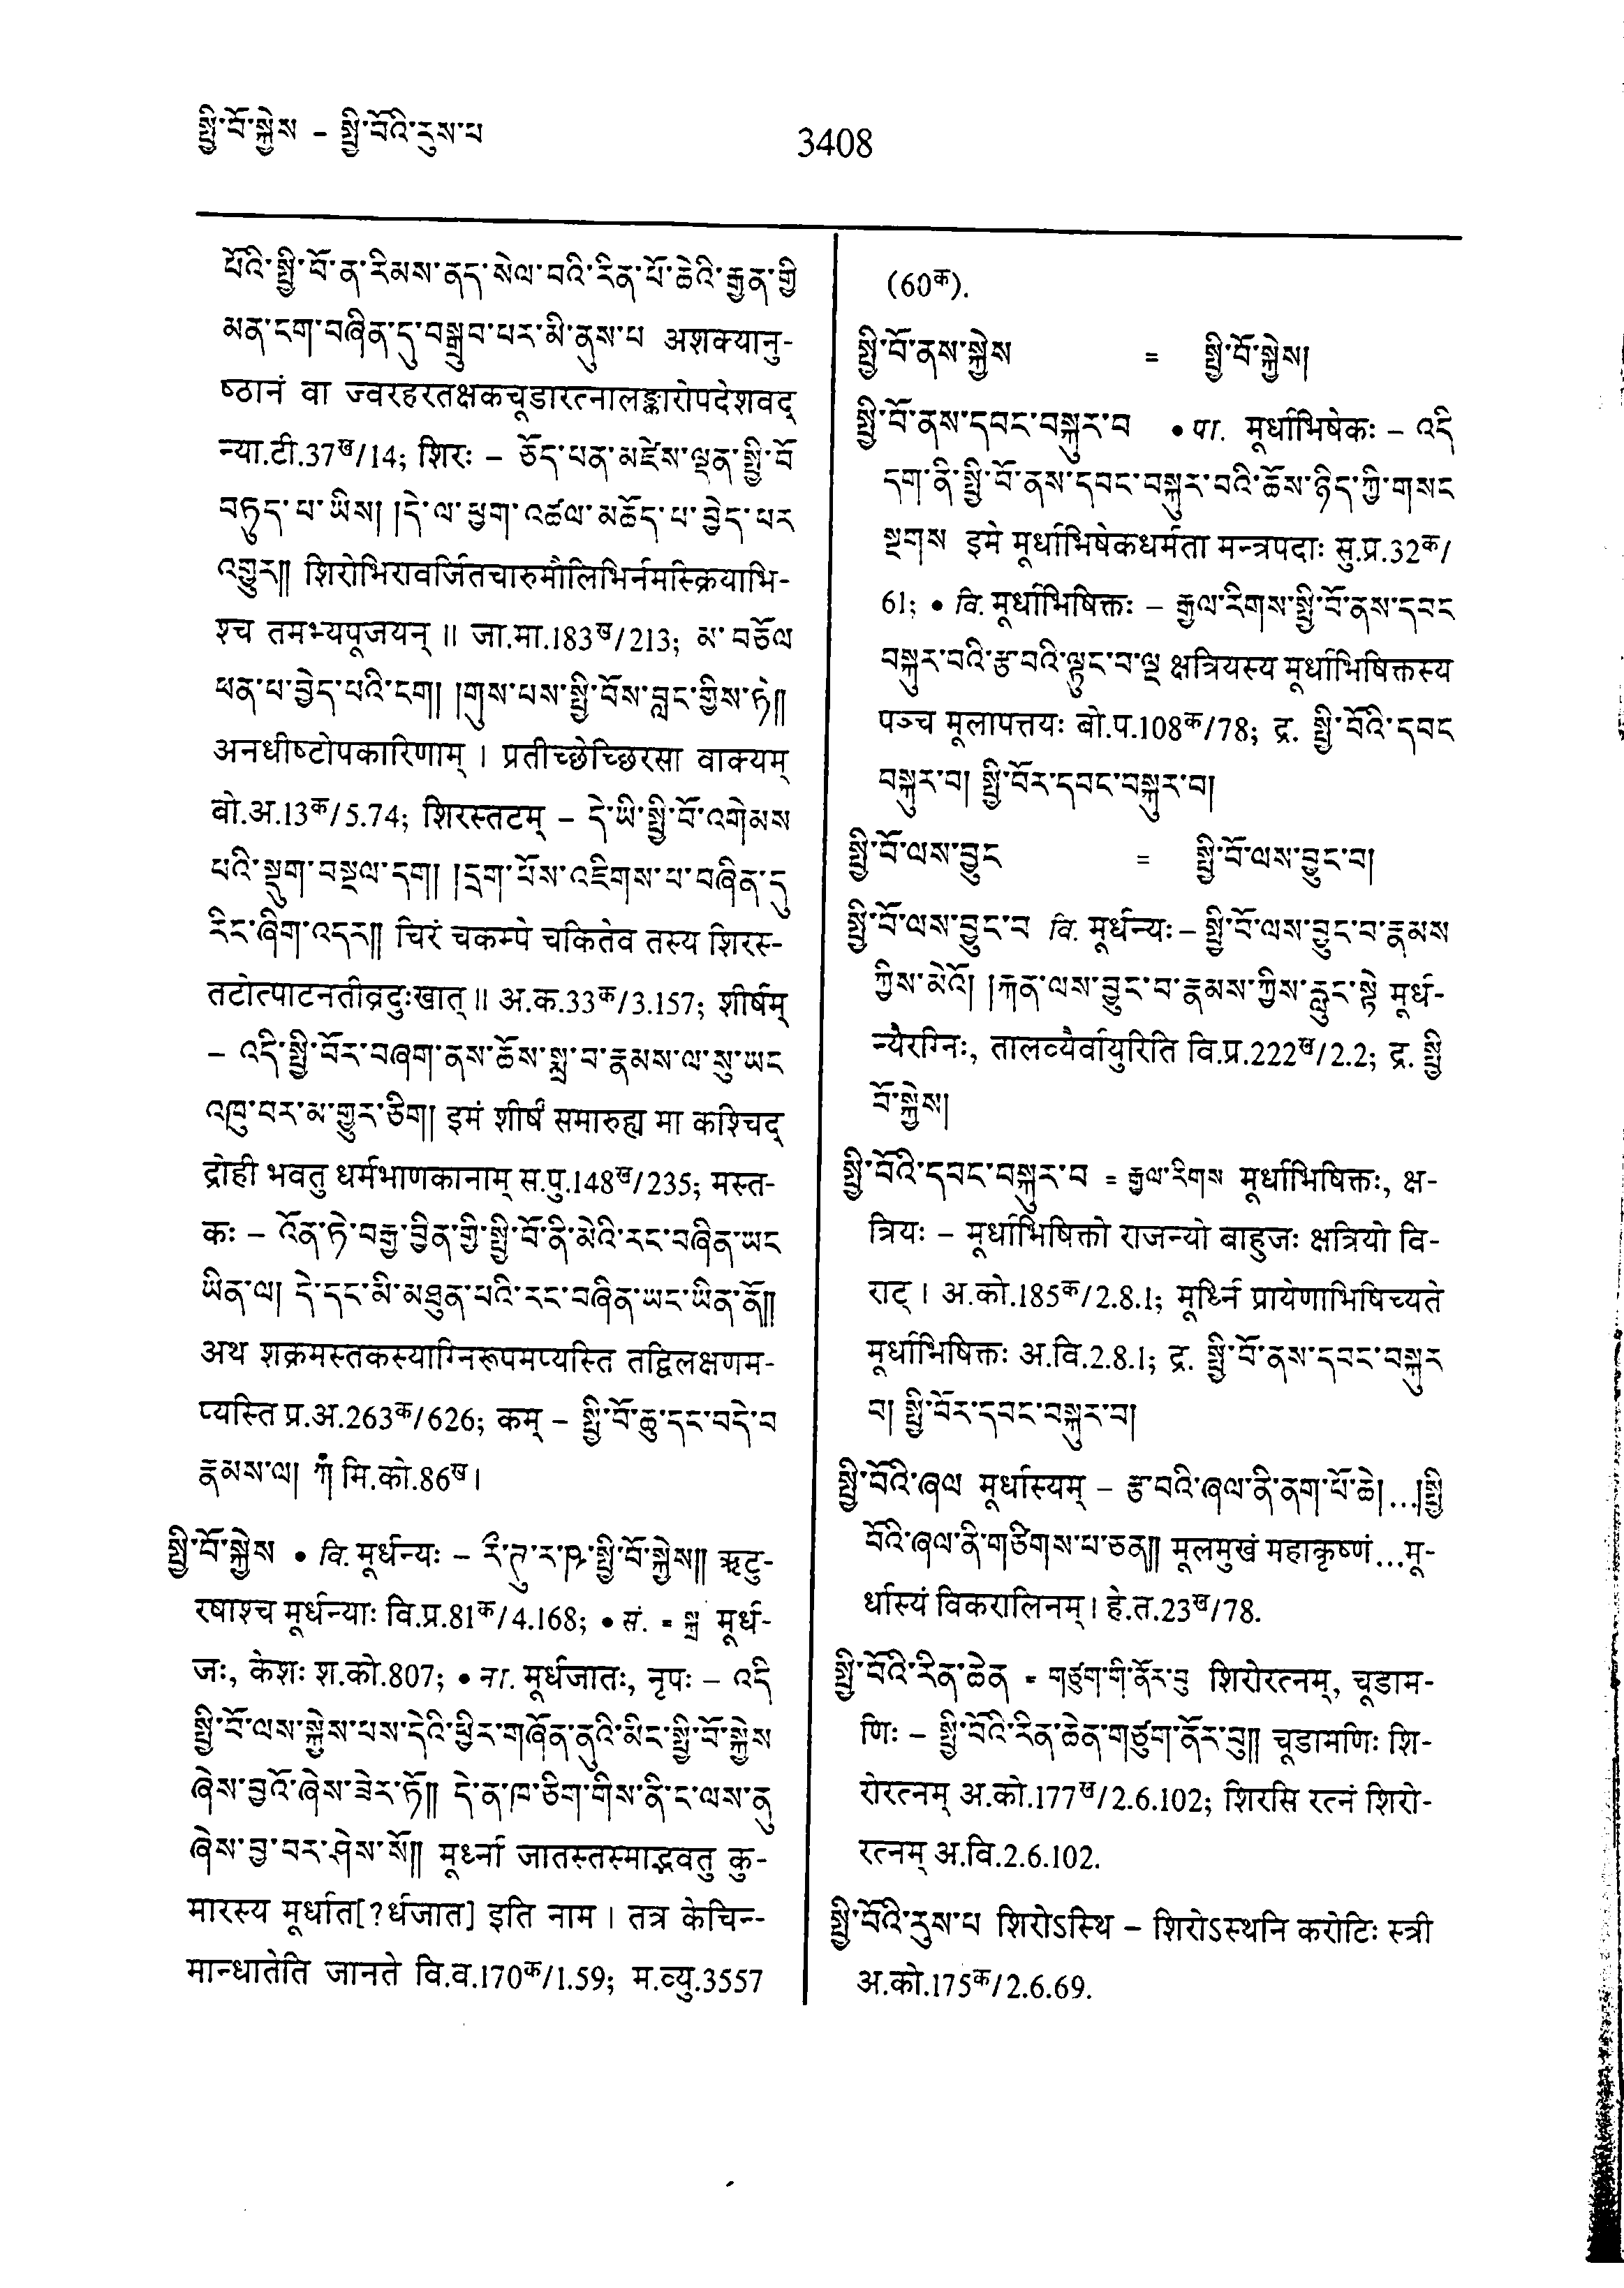 སྤྱི་བོ་སྐྱེས – སྤྱི་བོའི་རུས་པ
3408
པོའི་སྤྱི་བོ་ན་རིམས་ནད་སེལ་བའི་རིན་པོ་ཆེའི་རྒྱན་གྱི
མན་ངག་བཞིན་དུ་བསྒྲུབ་པར་མི་ནུས་པ अशक्यानु-
ष्ठानं वा ज्वरहरतक्षकचूडारत्नालङ्कारोपदेशवद्
न्या.टी.37ख/14; शिरः – ཅོད་པན་མཛེས་ལྡན་སྤྱི་བོ
བཏུད་པ་ཡིས། །དེ་ལ་ཕྱག་འཚལ་མཆོད་པ་བྱེད་པར
འགྱུར།། शिरोभिरावर्जितचारुमौलिभिर्नमस्क्रियाभि-
श्च तमभ्यपूजयन् ॥ जा.मा.183ख/213; མ་བཅོལ
ཕན་པ་བྱེད་པའི་ངག །གུས་པས་སྤྱི་བོས་བླང་གྱིས་ཏེ།།
अनधीष्टोपकारिणाम् । प्रतीच्छेच्छिरसा वाक्यम्
बो.अ.13क/5.74; शिरस्तटम् – དེ་ཡི་སྤྱི་བོ་འགེམས
པའི་སྡུག་བསྔལ་དག །དྲག་པོས་འཇིགས་པ་བཞིན་དུ
རིང་ཞིག་འདར།། चिरं चकम्पे चकितेव तस्य शिरस्-
तटोत्पाटनतीव्रदुःखात् ॥ अ.क.33क/3.157; शीर्षम्
– འདི་སྤྱི་བོར་བཞག་ནས་ཆོས་སྨྲ་བ་རྣམས་ལ་སུ་ཡང
འཁུ་བར་མ་གྱུར་ཅིག། इमं शीर्षं समारुह्य मा कश्चिद्
द्रोही भवतु धर्मभाणकानाम् स.पु.148ख/235; मस्त-
कः – འོན་ཏེ་བརྒྱ་བྱིན་གྱི་སྤྱི་བོ་ནི་མེའི་རང་བཞིན་ཡང
ཡིན་ལ། དེ་དང་མི་མཐུན་པའི་རང་བཞིན་ཡང་ཡིན་ནོ།།
अथ शक्रमस्तकस्याग्निरूपमप्यस्ति तद्विलक्षणम-
प्यस्ति प्र.अ.263क/626; कम् – སྤྱི་བོ་ཆུ་དང་བདེ་བ
རྣམས་ལ། ཀཾ मि.को.86ख।
སྤྱི་བོ་སྐྱེས • वि. मूर्धन्यः – རྀ་ཊུ་ར་ཥ་སྤྱི་བོ་སྐྱེས།། ऋटु-
रषाश्च मूर्धन्याः वि.प्र.81क/4.168; • सं. = སྐྲ मूर्ध-
जः, केशः श.को.807; • ना. मूर्धजातः, नृपः – འདི
སྤྱི་བོ་ལས་སྐྱེས་པས་དེའི་ཕྱིར་གཞོན་ནུའི་མིང་སྤྱི་བོ་སྐྱེས
ཞེས་བྱའོ་ཞེས་ཟེར་ཏོ།། དེ་ན་ཁ་ཅིག་གིས་ནི་ང་ལས་ནུ
ཞེས་བྱ་བར་ཤེས་སོ།། मूर्ध्नो जातस्तस्माद्भवतु कु-
मारस्य मूर्धात[?र्धजात] इति नाम । तत्र केचिन्-
मान्धातेति जानते वि.व.170क/1.59; म.व्यु.3557
(60क).
སྤྱི་བོ་ནས་སྐྱེས = སྤྱི་བོ་སྐྱེས།
སྤྱི་བོ་ནས་དབང་བསྐུར་བ • पा. मूर्धाभिषेकः – འདི
དག་ནི་སྤྱི་བོ་ནས་དབང་བསྐུར་བའི་ཆོས་ཉིད་ཀྱི་གསང
སྔགས इमे मूर्धाभिषेकधर्मता मन्त्रपदाः सु.प्र.32क/
61; • वि. मूर्धाभिषिक्तः – རྒྱལ་རིགས་སྤྱི་བོ་ནས་དབང
བསྐུར་བའི་རྩ་བའི་ལྟུང་བ་ལྔ क्षत्रियस्य मूर्धाभिषिक्तस्य
पञ्च मूलापत्तयः बो.प.108क/78; द्र. སྤྱི་བོའི་དབང
བསྐུར་བ། སྤྱི་བོར་དབང་བསྐུར་བ།
སྤྱི་བོ་ལས་བྱུང = སྤྱི་བོ་ལས་བྱུང་བ།
སྤྱི་བོ་ལས་བྱུང་བ वि. मूर्धन्यः – སྤྱི་བོ་ལས་བྱུང་བ་རྣམས
ཀྱིས་མེའོ། །རྐན་ལས་བྱུང་བ་རྣམས་ཀྱིས་རླུང་སྟེ मूर्ध-
न्यैरग्निः, तालव्यैर्वायुरिति वि.प्र.222ख/2.2; द्र. སྤྱི
བོ་སྐྱེས།
སྤྱི་བོའི་དབང་བསྐུར་བ = རྒྱལ་རིགས मूर्धाभिषिक्तः, क्ष-
त्रियः – मूर्धाभिषिक्तो राजन्यो बाहुजः क्षत्रियो वि-
राट् । अ.को.185क/2.8.1; मूर्ध्नि प्रायेणाभिषिच्यते
मूर्धाभिषिक्तः अ.वि.2.8.1; द्र. སྤྱི་བོ་ནས་དབང་བསྐུར
བ། སྤྱི་བོར་དབང་བསྐུར་བ།
སྤྱི་བོའི་ཞལ मूर्धास्यम् – རྩ་བའི་ཞལ་ནི་ནག་པོ་ཆེ།...།སྤྱི
བོའི་ཞལ་ནི་གཙིགས་པ་ཅན།། मूलमुखं महाकृष्णं...मू-
र्धास्यं विकरालिनम्। हे.त.23ख/78.
སྤྱི་བོའི་རིན་ཆེན = གཙུག་གི་ནོར་བུ शिरोरत्नम्, चूडाम-
णिः – སྤྱི་བོའི་རིན་ཆེན་གཙུག་ནོར་བུ།། चूडामणिः शि-
रोरत्नम् अ.को.177ख/2.6.102; शिरसि रत्नं शिरो-
रत्नम् अ.वि.2.6.102.
སྤྱི་བོའི་རུས་པ शिरोऽस्थि – शिरोऽस्थनि करोटिः स्त्री
अ.को.175क/2.6.69.